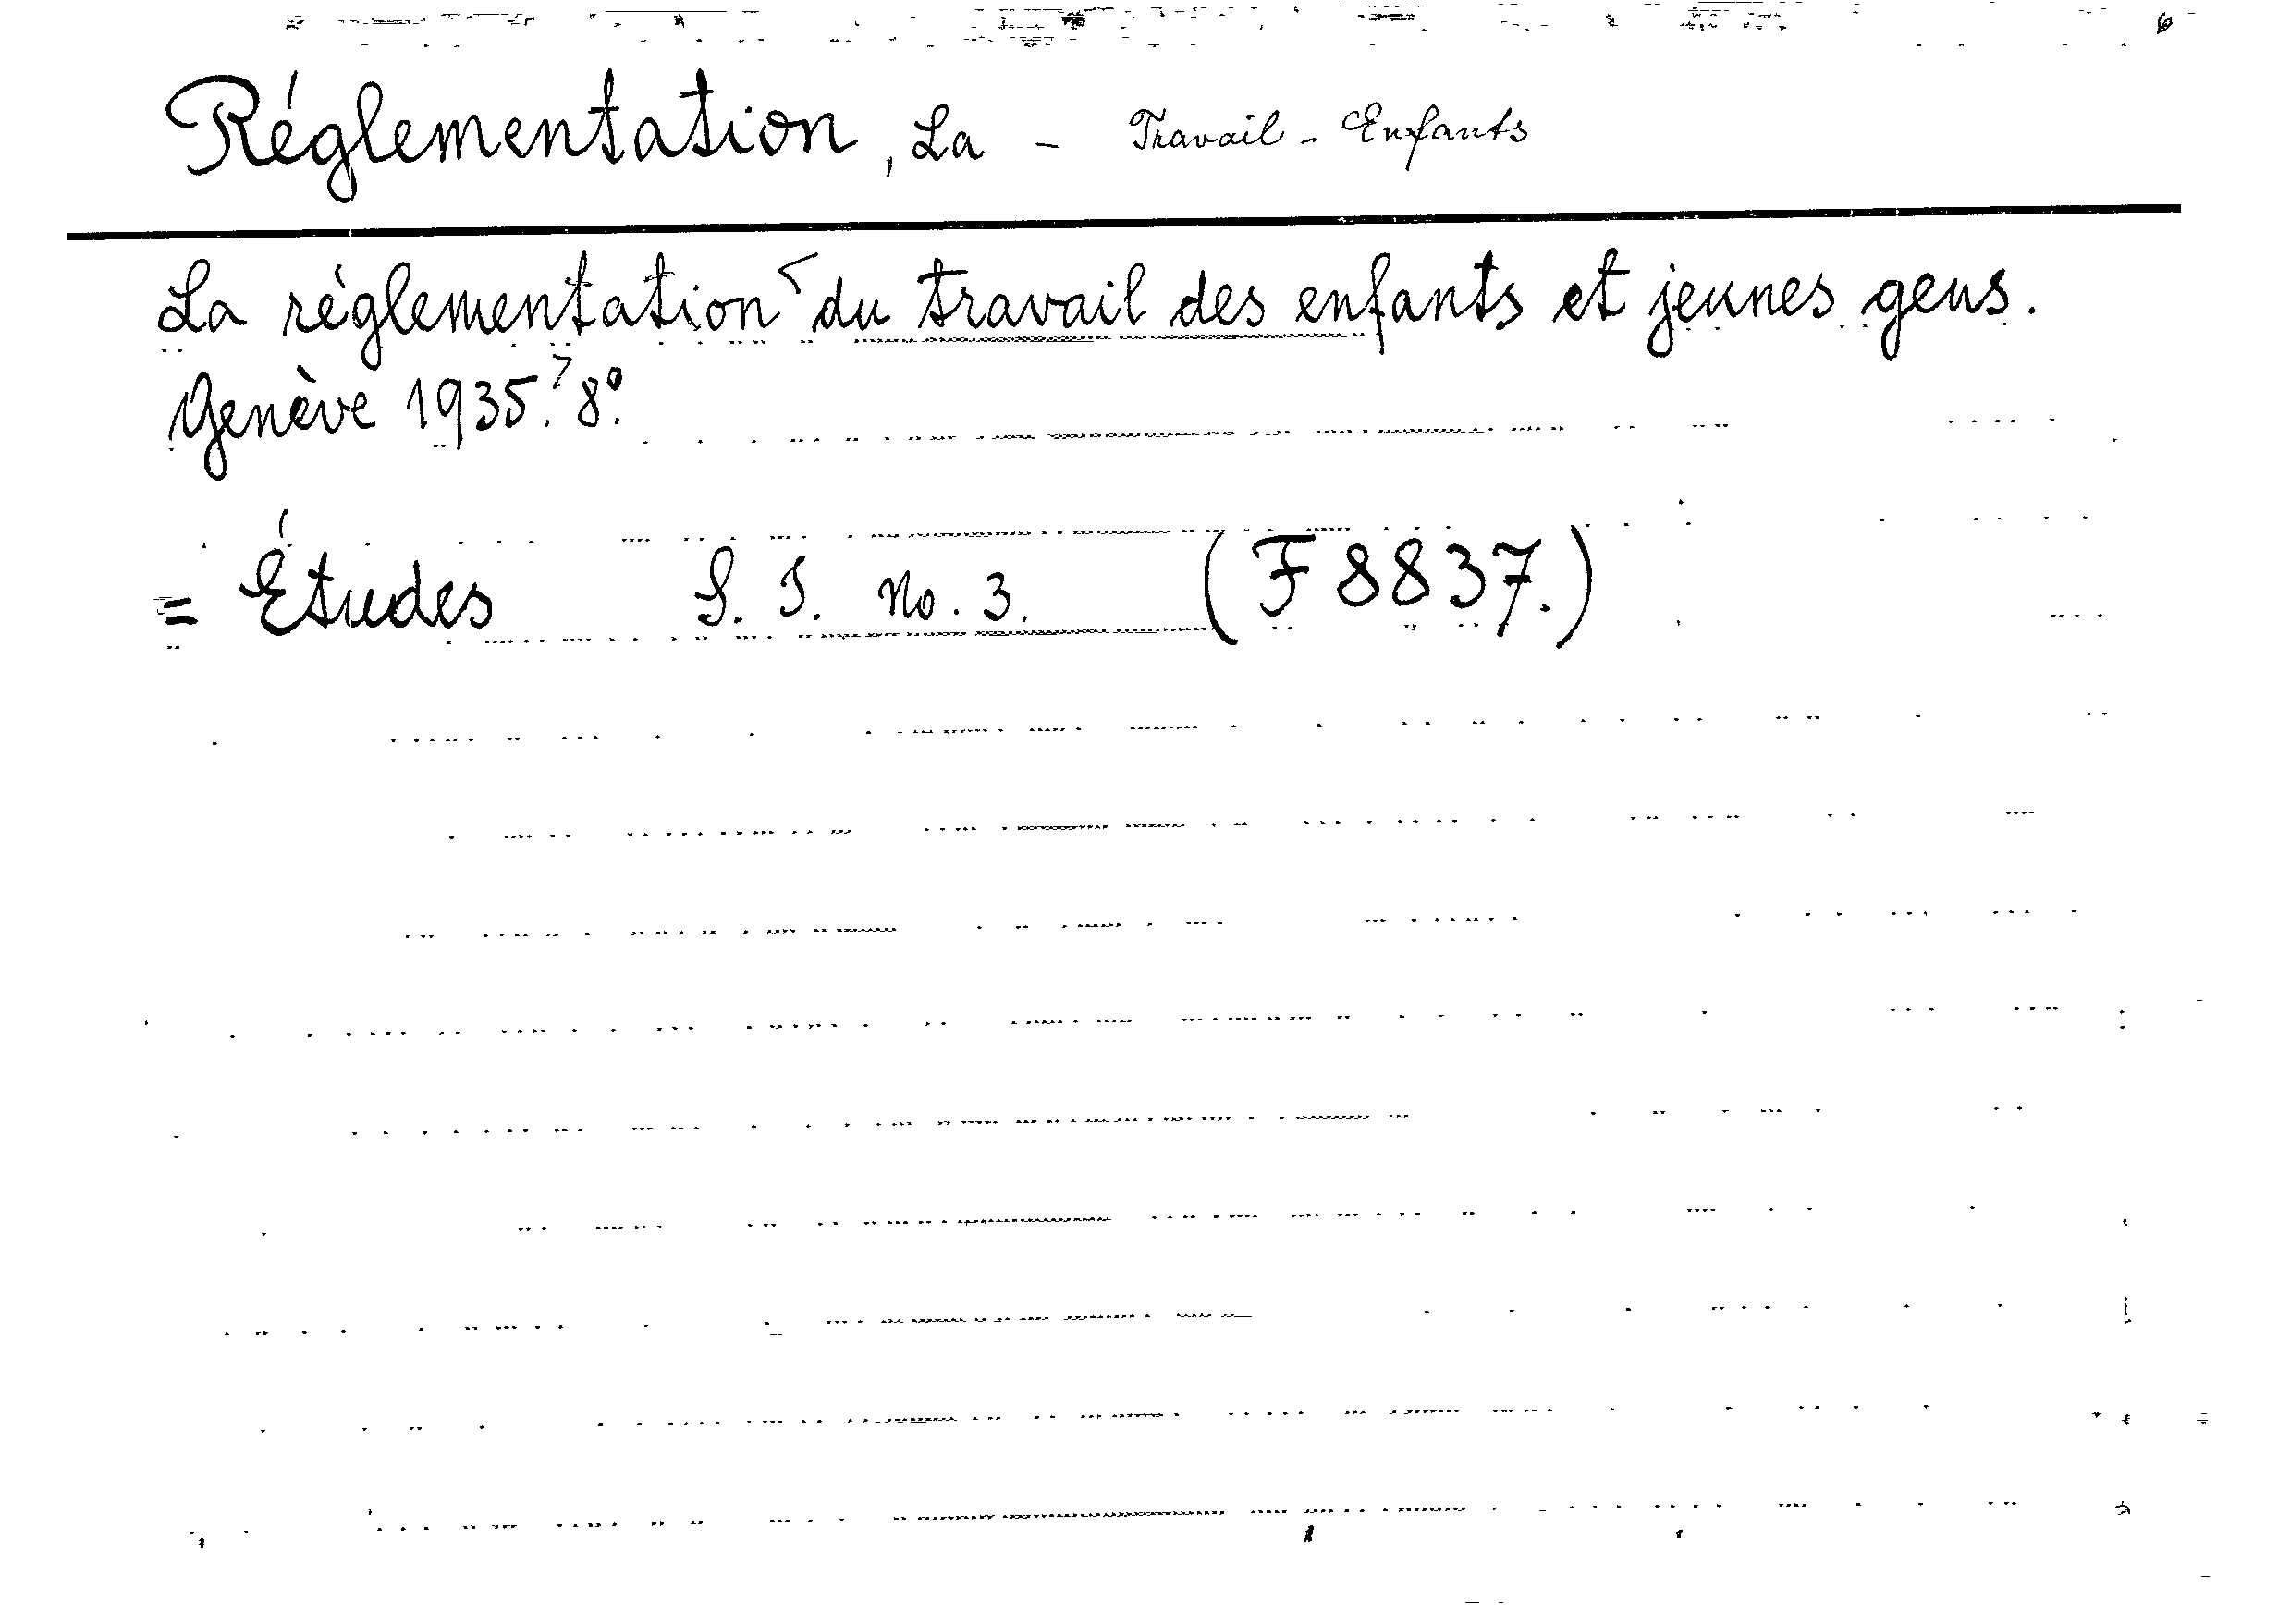 Réglementation, La - Travail - Enfants
La réglementation du travail des enfants et jeunes gens.
Genève 1935. 8º.
= Études S. I. No. 3. (F 8837.)